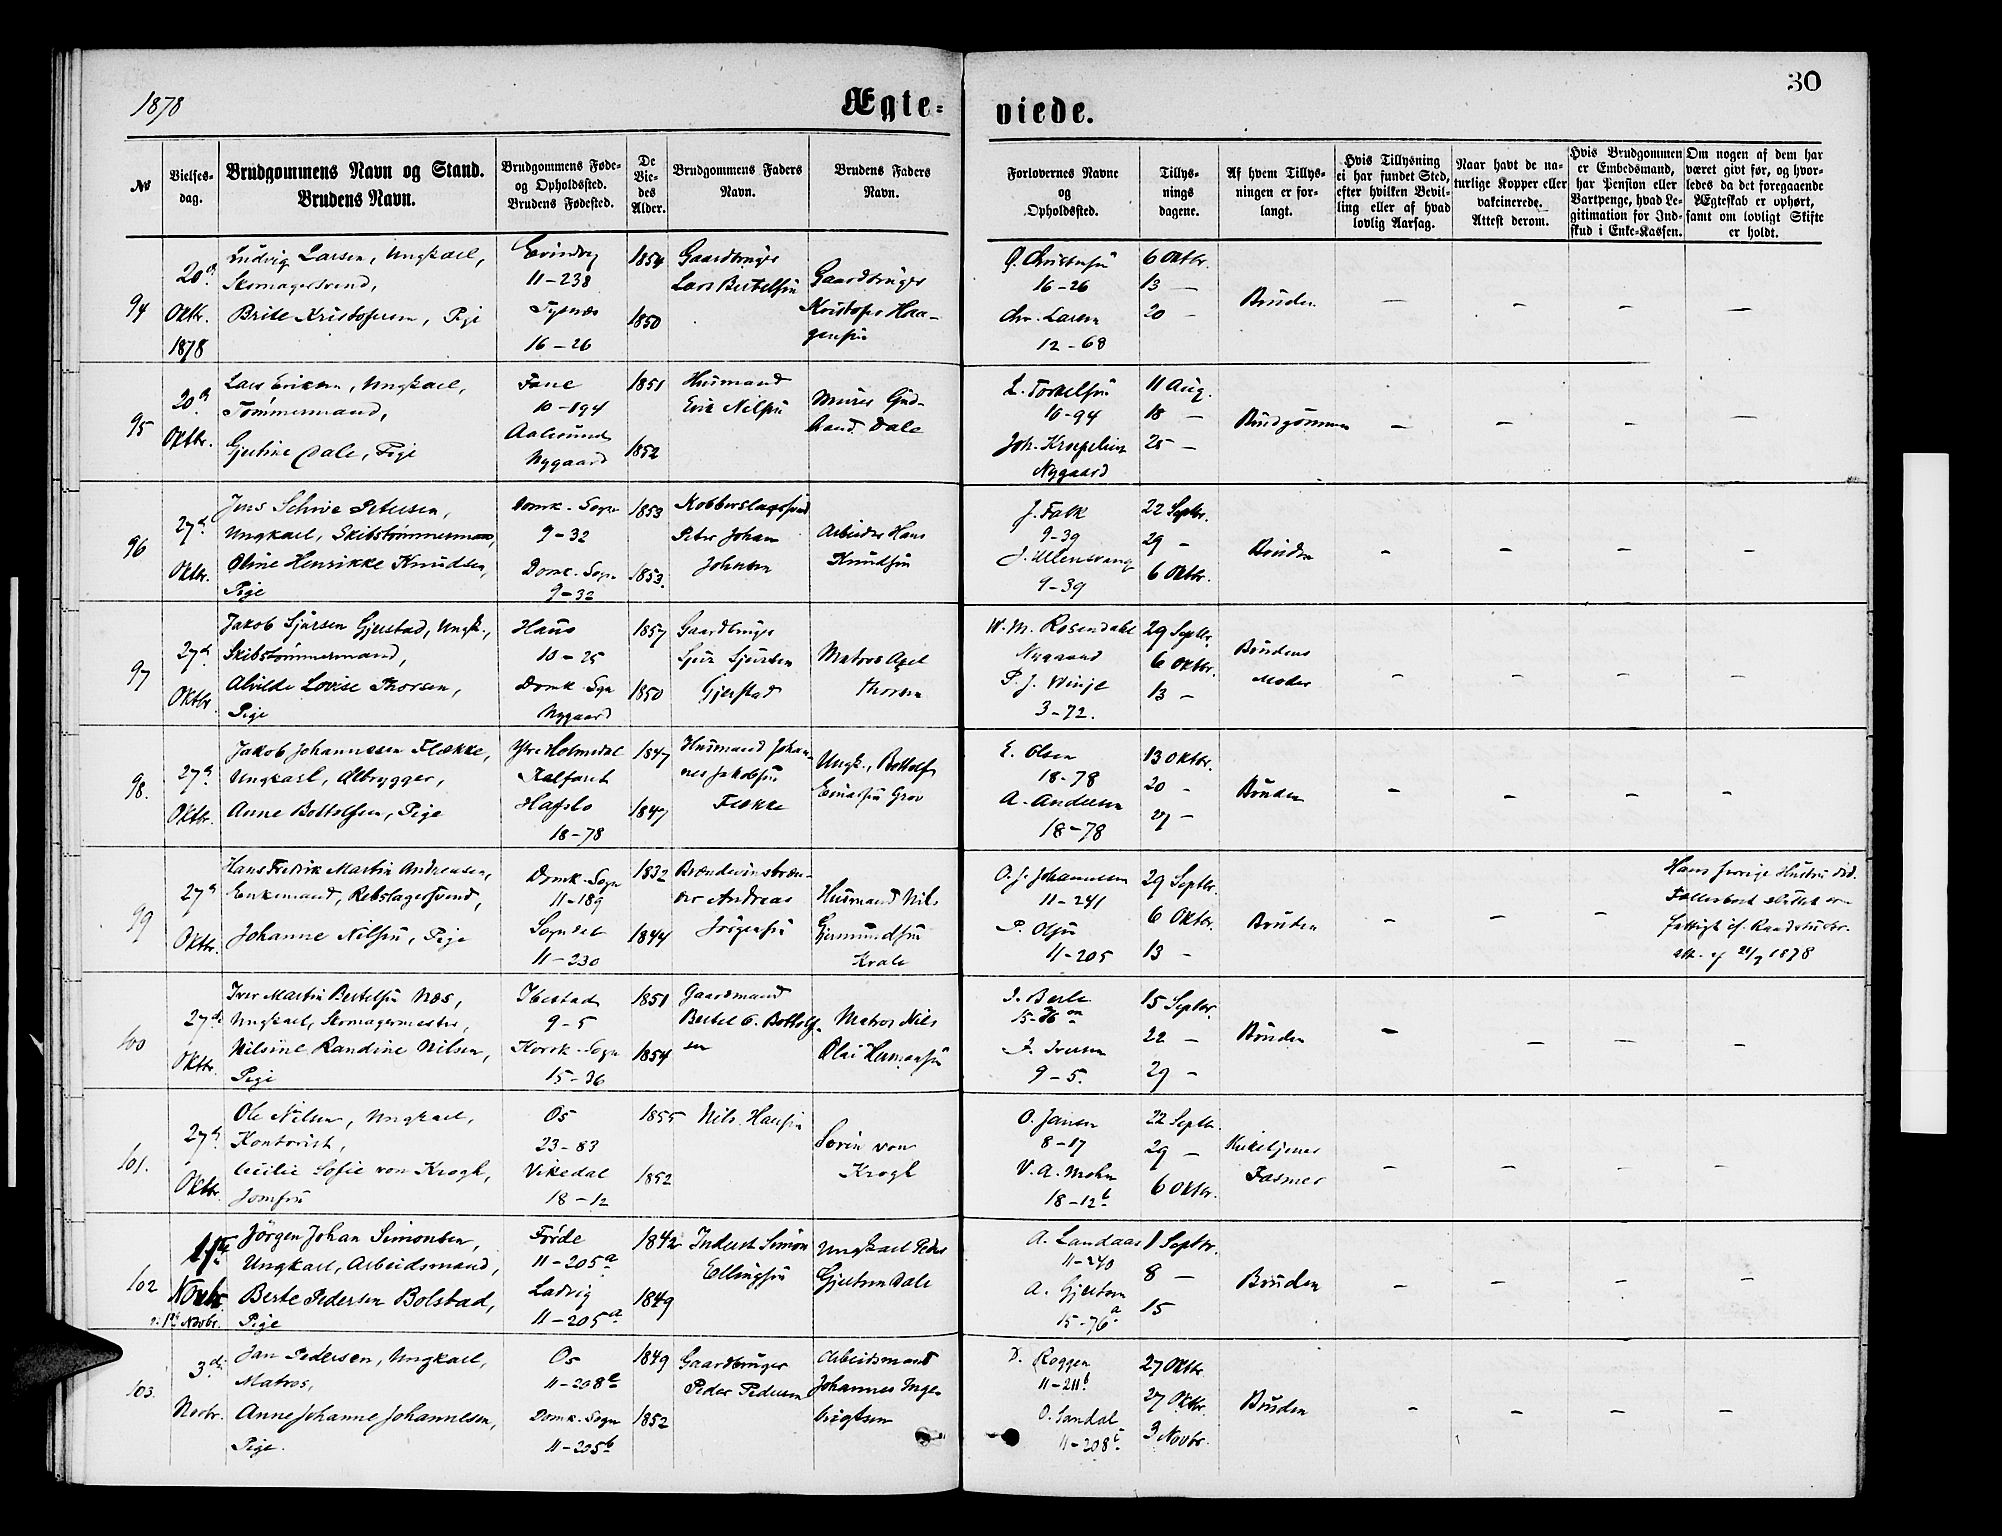 1878
Ægte-
viede.
30
No
Vielses-
dag.
Brudgommens Navn og Stand.
Brudens Navn.
Brudgommens Føde-
og Opholdssted.
Brudens Fødested.
De
Vie-
des
Alder.
Brudgommens Faders
Navn.
Brudens Faders
Navn.
Forlovernes Navne
og
Opholdssted.
Tillys-
nings
dagene.
Af hvem Tillys-
ningen er for-
langt.
Hvis Tillysning
ei har fundet Sted,
efter hvilken Bevil-
ling eller af hvad
lovlig Aarsag.
Naar havt de na-
turlige Kopper eller
vakcinerede.
Attest derom.
Hvis Brudgommen
er Embedsmand,
har Pension eller
Vartpenge, hvad Le-
gitimation for Ind-
skud i Enke-Kassen.
Om nogen af dem har
været givt før, og hvor-
ledes da det foregaaende
Ægteskab er ophørt,
samt om lovligt Skifte
er holdt.
94
20
Oktbr.
1878
Ludvig Larsen, Ungkarl,
Skomagersvend,
Brite Kristofersen, Pige
Evindvig
11-238
Tysnæs
16-26
1854
1850
Gaardbruger
Lars Bertelsen
Gaardbruger
Kristofer Haa-
gensen
16-26
Chr. Larsen
12-68
6 Oktbr.
13 -
20 -
Bruden
95
20
Oktbr.
Lars Eriksen, Ungkarl,
Tømmermand,
Gjertine Dale, Pige
Fane
10-194
Aalesund
Nygaard
1851
1852
Husmand
Erik Nilsen
Murer Gud-
brand Dale
L. Torkelsen
10-94
Joh. Krøpelien
Nygaard
11 Aug.
18 -
25 -
Brudgommen
96
27
Oktbr.
Jens Schive Petersen,
Ungkarl, Skibstømmermand,
Oline Henrikke Knudsen,
Pige
Domk.-Sogn
9-32
Domk.-Sogn
9-32
1853
1853
Kobberslagersvend
Peter Johan
Johnsen
Arbeider Hans
Knudsen
J. Falk
9-39
J. Ullensvang
9-39
22 Septbr.
29 -
6 Oktbr.
Bruden
97
27
Oktbr.
Jakob Sjursen Gjerstad, Ungk.,
Skibstømmermand,
Alvilde Lovise Thorsen,
Pige
Haus
10-25
Domk.-Sgn
Nygaard
1857
1850
Gaardbruger
Sjur Sjursen
Gjerstad
Matros Axel
Thorsen
W. M. Rosendahl
Nygaard
P. J. Winje
3-72.
29 Septbr.
6 Oktbr.
13 -
Brudens
Moder
98.
27
Oktbr.
Jakob Johannessen Flække,
Ungkarl, Ølbrygger,
Anne Bottolfsen, Pige
Ytre Holmedal
Kalfaret
Hafslo
18-78
1847
1847
Husmand Johan-
nes Jakobsen
Flække
Ungk., Bottolf
Einarsen Grov
E. Olsen
18-78
A. Andersen
18-78
13 Oktbr.
20 -
27 -
Bruden
99
27
Oktbr.
Hans Fredrik Martin Andreasen,
Enkemand, Rebslagersvend,
Johanne Nilsen, Pige
Domk.-Sogn
11-189
Sogndal
11-230
1832
1844
Brændevinsbræn-
der Andreas
Jörgensen
Husmand Nils
Gjermundsen
Kvale
O. J. Johannesen
11-241
P. Olsen
11-205
29 Septbr.
6 Oktbr.
13 -
Bruden
Hans forrige Hustru død.
1878
100
27
Oktbr.
Iver Martin Bertelsen Næs,
Ungkarl, Skomagermester,
Nilsine Randine Nilsen,
Pige
Ibestad
9-5
Korsk.-Sogn
15-36
1851
1854
Gaardmand
Bertel C. Bottolf-
sen
Matros Nils
Olai Hermansen
J. Berle
15-86
J. Iversen
9-5.
15 Septbr.
22 -
29 -
Bruden
101.
27
Oktbr.
Ole Nilsen, Ungkarl,
Kontorist,
Cecilie Sofie von Krogh,
Jomfru
Os
23-83
Vikedal
18-12
1855
1852
Nils Hansen
Sören von
Krogh
O. Jansen
8-17
V. A. Mohn
18-12 b
22 Septbr.
29 -
6 Oktbr.
Kirketjener
Fasmer
102
1ste
Novbr.
ɔ: 1ste Novbr.
Jörgen Johan Simonsen,
Ungkarl, Arbeidsmand,
Berte Pedersen Bolstad,
Pige
Førde
11-205 a
Ladvig
11-205 a
1842
1849
Inderst Simon
Ellingsen
Ungkarl Peder
Gjertsen Dale
A. Landaas
11-240
A. Gjertsen
15-76 a
1 Septbr.
8 -
15
Bruden
103
3die
Novbr.
Jan Pedersen, Ungkarl,
Matros,
Anne Johanne Johannesen,
Pige.
Os
11-208 c
Domk.-Sogn
11-205 b
1849
1852
Gaardbruger
Peder Pedersen
Arbeidsmand
Johannes Inge-
brigtsen
D. Roggen
11-211 b
O. Sandal
11-208 c
27 Oktbr.
27 Oktbr.
3 Novbr.
Bruden